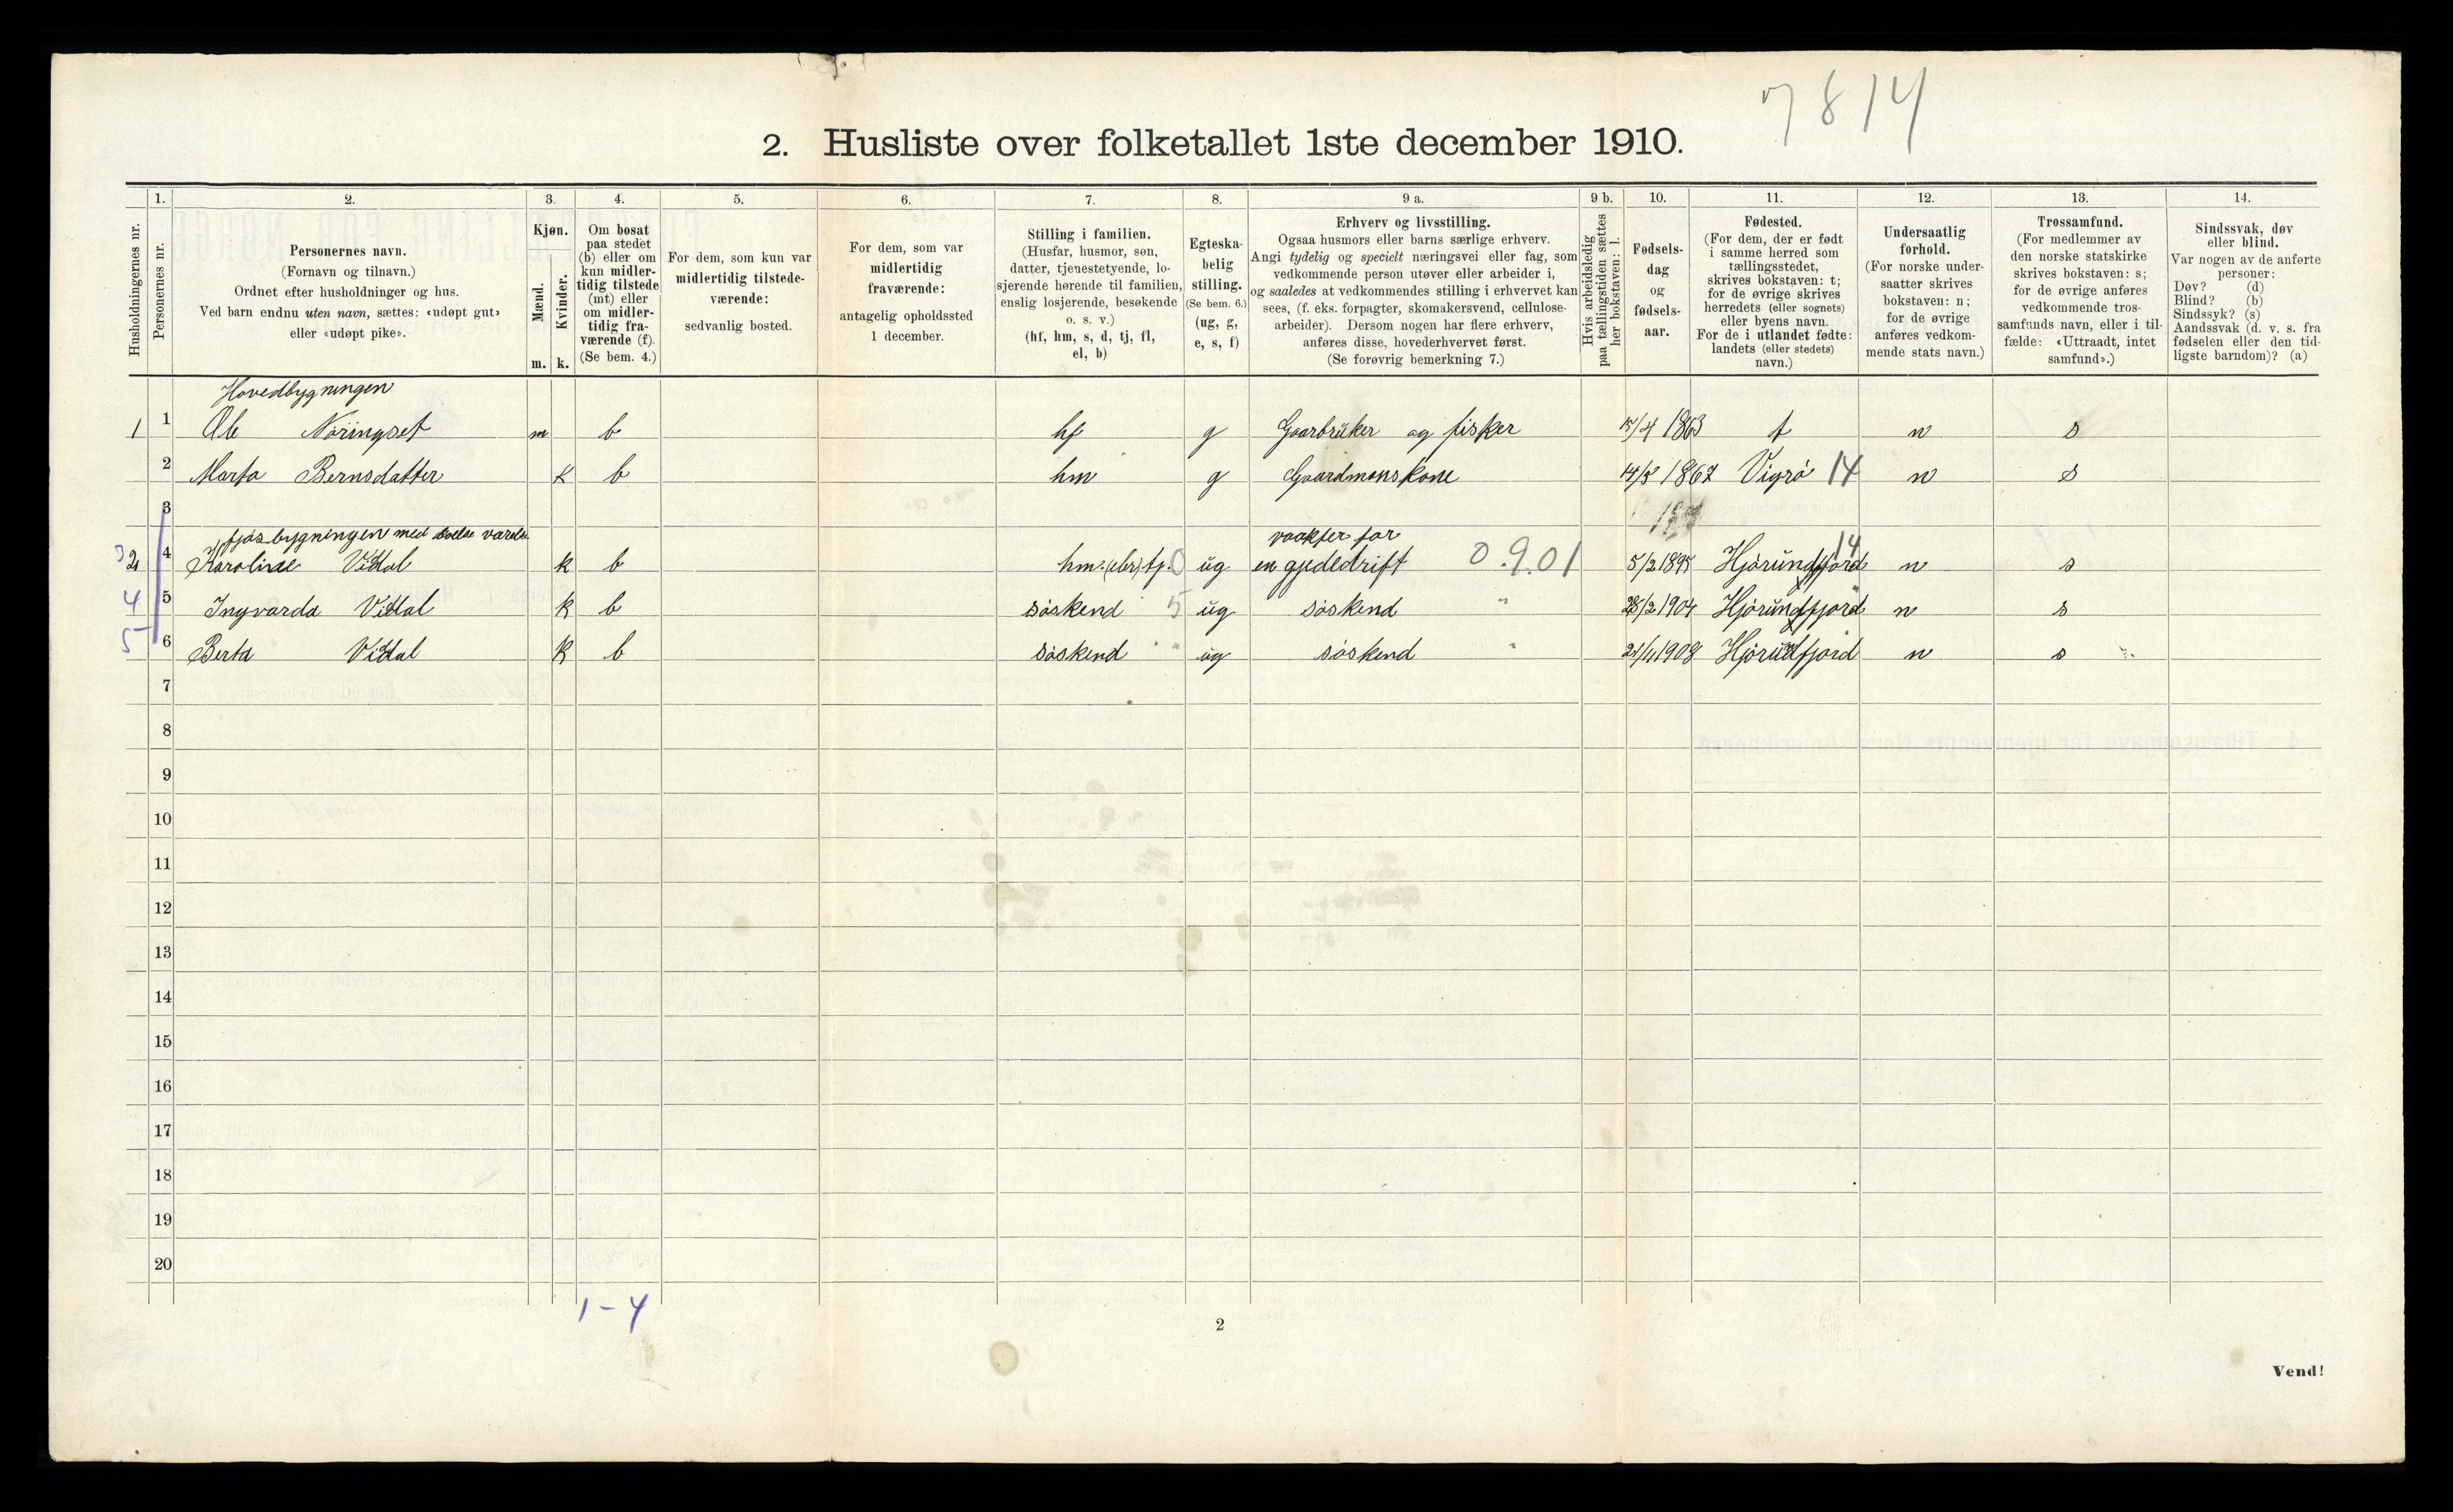 7814
2. Husliste over folketallet 1ste december 1910.
Husholdningernes nr.
1.
Personernes nr.
2.
Personernes navn.
(Fornavn og tilnavn.)
Ordnet efter husholdninger og hus.
Ved barn endnu uten navn, sættes: «udøpt gut»
eller «udøpt pike».
3.
Kjøn.
Mænd.
Kvinder.
m. k.
4.
Om bosat
paa stedet
(b) eller om
kun midler-
tidig tilstede
(mt) eller
om midler-
tidig fra-
værende (f).
(Se bem. 4.)
5.
For dem, som kun var
midlertidig tilstede-
værende:
sedvanlig bosted.
6.
For dem, som var
midlertidig
fraværende:
antagelig opholdssted
1 december.
7.
Stilling i familien.
(Husfar, husmor, søn,
datter, tjenestetyende, lo-
sjerende hørende til familien,
enslig losjerende, besøkende
o. s. v.)
(hf, hm, s, d, tj, fl,
el, b)
8.
Egteska-
belig
stilling.
(Se bem. 6.)
(ug, g,
e, s, f)
9 a.
Erhverv og livsstilling.
Ogsaa husmors eller barns særlige erhverv.
Angi tydelig og specielt næringsvei eller fag, som
vedkommende person utøver eller arbeider i,
og saaledes at vedkommendes stilling i erhvervet kan
sees, (f. eks. forpagter, skomakersvend, cellulose-
arbeider). Dersom nogen har flere erhverv,
anføres disse, hovederhvervet først.
(Se forøvrig bemerkning 7.)
9 b.
Hvis arbeidsledig
paa tællingstiden sættes
her bokstaven: l.
10.
Fødsels-
dag
og
fødsels-
aar.
11.
Fødested.
(For dem, der er født
i samme herred som
tællingsstedet,
skrives bokstaven: t;
for de øvrige skrives
herredets (eller sognets)
eller byens navn.
For de i utlandet fødte:
landets (eller stedets)
navn.)
12.
Undersaatlig
forhold.
(For norske under-
saatter skrives
bokstaven: n;
for de øvrige
anføres vedkom-
mende stats navn.)
13.
Trossamfund.
(For medlemmer av
den norske statskirke
skrives bokstaven: s;
for de øvrige anføres
vedkommende tros-
samfunds navn, eller i til-
fælde: «Uttraadt, intet
samfund».)
14.
Sindssvak, døv
eller blind.
Var nogen av de anførte
personer:
Døv? (d)
Blind? (b)
Sindssyk? (s)
Aandssvak (d. v. s. fra
fødselen eller den tid-
ligste barndom)? (a)
Hovedbygningen
1 1 Ole Nøringset m b hf g Gaarbruker og fisker 15/4 1863 t n s
2 Marta Bernsdatter k b hm g Gaardmanskone 14/3 1867 Vigrø 14 n s
3
fjøsbygningen med
2 3 4 Karoline Vidal k b hm. tj. 0 ug vakter for en gjedledrift 0.9.01 5/2 1895 Hjørundfjord 14 n s
4 5 Ingvarda Vidal k b søskend 5 ug søskend " 28/2 1904 Hjørundfjord n s
5 6 Berta Vidal k b søskend " ug søskend " 21/11 1908 Hjørundfjord n s
7
8
9
10
11
12
13
14
15
16
17
18
19
20
1-4
2
Vend!